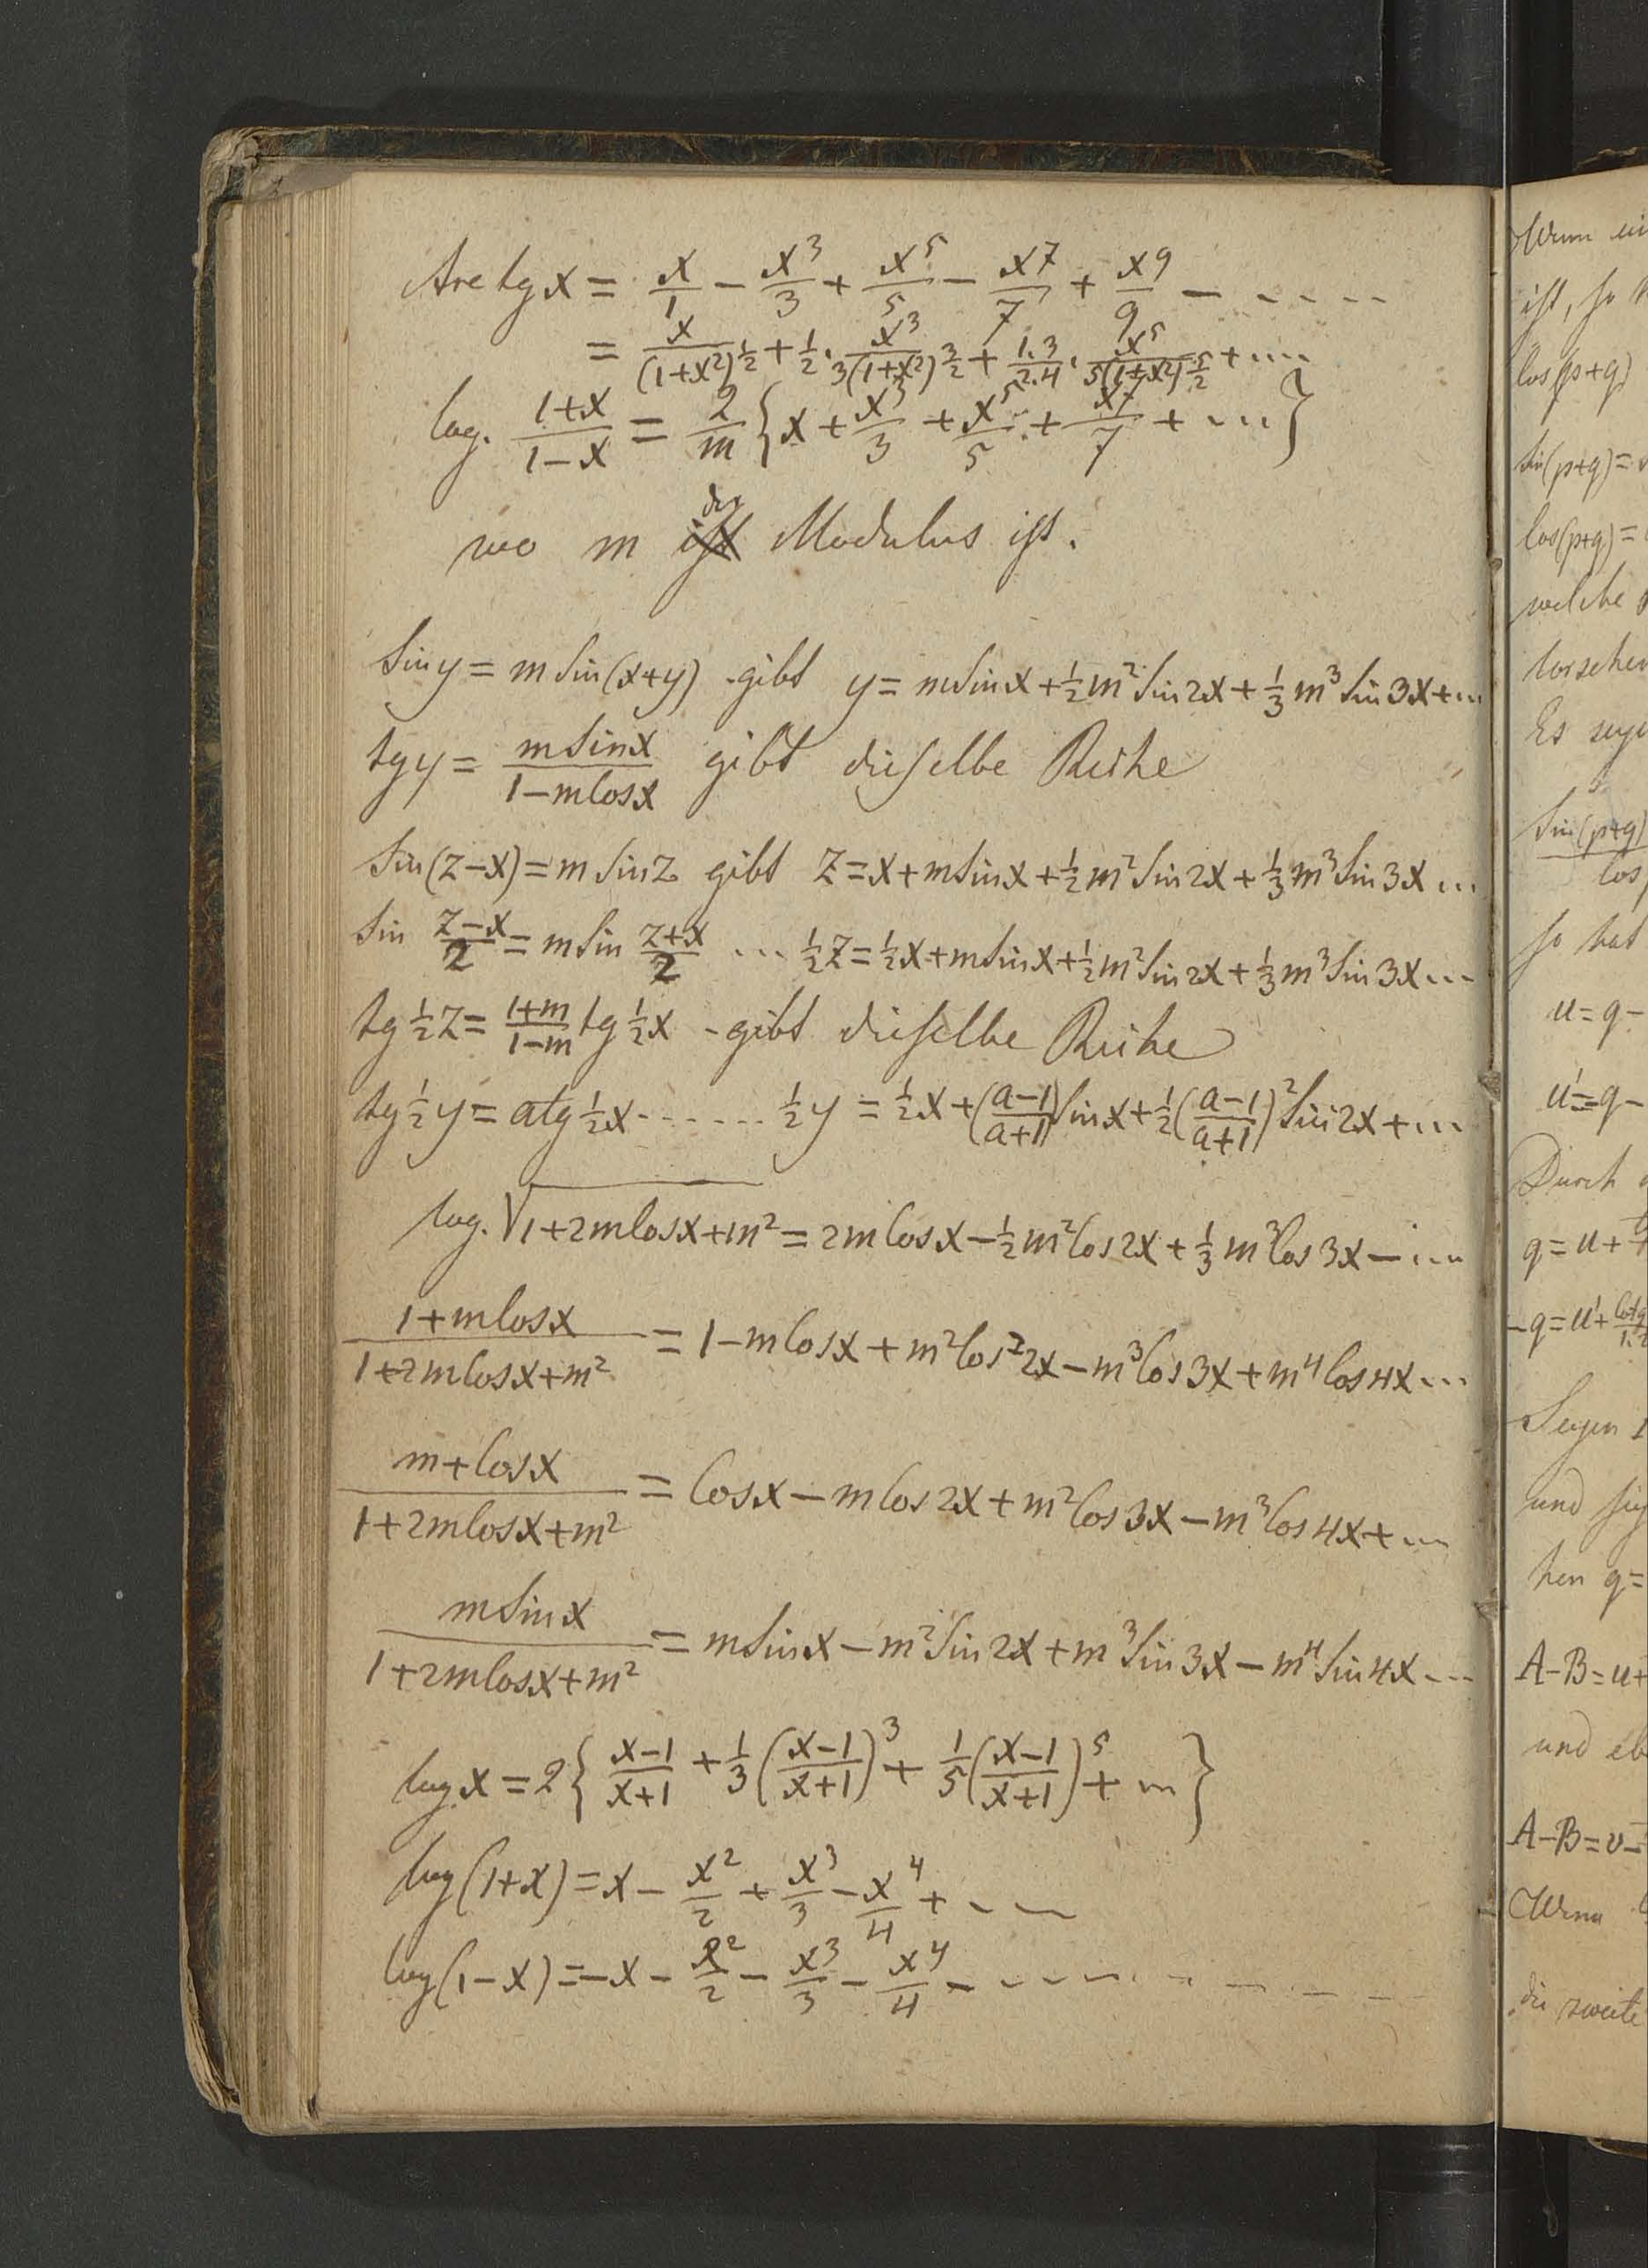 Arc tg x = x/1 − x³/3 + x⁵/5 − x⁷/7 + x⁹/9 − .....
= x/(1+x²)^½ + ½ · x³/3(1+x²)^3/2 + 1.3/2.4 · x⁵/5(1+x²)^5/2 + ....
log. (1+x)/(1−x) = 2/m {x + x³/3 + x⁵/5 + x⁷/7 + ...}
wo m ist der Modulus ist.
Sin y = m Sin(x+y) gibt y = m Sin x + ½ m² Sin 2x + ⅓ m³ Sin 3x + ...
tg y = m Sin x/(1−m Cos x) gibt dieselbe Reihe
Sin(z−x) = m Sin z gibt z = x + m Sin x + ½ m² Sin 2x + ⅓ m³ Sin 3x ...
Sin (z−x)/2 = m Sin (z+x)/2 ... ½z = ½x + m Sin x + ½ m² Sin 2x + ⅓ m³ Sin 3x ...
tg ½z = (1+m)/(1−m) tg ½x gibt dieselbe Reihe
tg ½y = a tg ½x ....... ½y = ½x + ((a−1)/(a+1)) Sin x + ½ ((a−1)/(a+1))² Sin 2x + ...
log. √1+2m Cos x+m² = 2m Cos x − ½ m² Cos 2x + ⅓ m³ Cos 3x − ...
(1+m Cos x)/(1+2m Cos x+m²) = 1 − m Cos x + m² Cos² 2x − m³ Cos 3x + m⁴ Cos 4x ...
(m+Cos x)/(1+2m Cos x+m²) = Cos x − m Cos 2x + m² Cos 3x − m³ Cos 4x + ...
m Sin x/(1+2m Cos x+m²) = m Sin x − m² Sin 2x + m³ Sin 3x − m⁴ Sin 4x ...
log x = 2 { (x−1)/(x+1) + ⅓ ((x−1)/(x+1))³ + 1/5 ((x−1)/(x+1))⁵ + ... }
log (1+x) = x − x²/2 + x³/3 − x⁴/4 + ...
log (1−x) = −x − x²/2 − x³/3 − x⁴/4 − ..........
Wenn
ist, so
Cos(p+q)
Sin(p+q) =
Cos(p+q) =
welche
Es
Sin(p+q)
Cos
so hat
u = q −
u' = q −
Durch
q = u +
−q = u' +
Seyen
und
hen q =
A−B = u +
und
A−B = v −
Wenn
die zweite